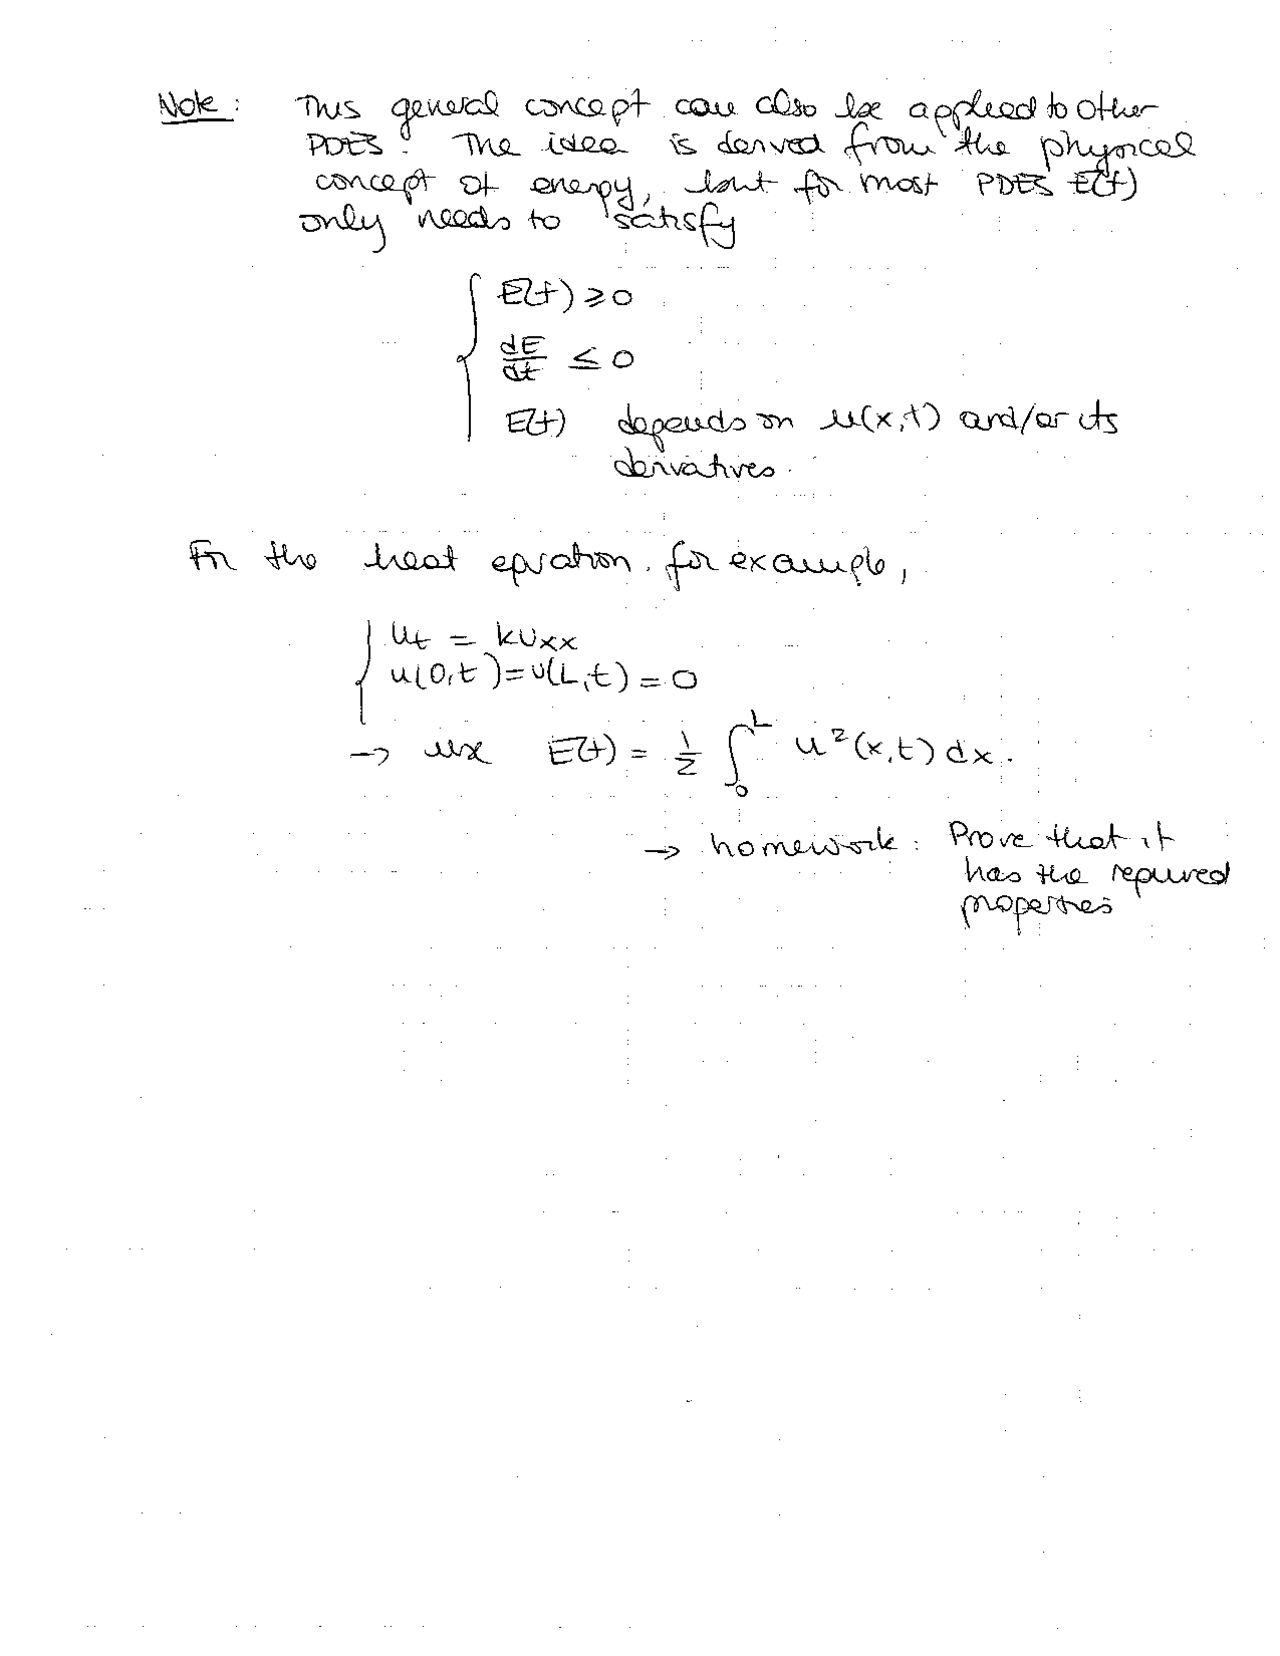 Note: This general concept can also be applied to other
PDEs. The idea is derived from the physical
concept of energy, but for most PDEs E(t)
only needs to satisfy
{ E(t) ≥ 0
dE/dt ≤ 0
E(t) depends on u(x,t) and/or its
derivatives.
For the heat equation, for example,
{ u_t = k u_xx
u(0,t) = u(L,t) = 0
→ use E(t) = 1/2 ∫_0^L u²(x,t) dx.
→ homework: Prove that it
has the required
properties